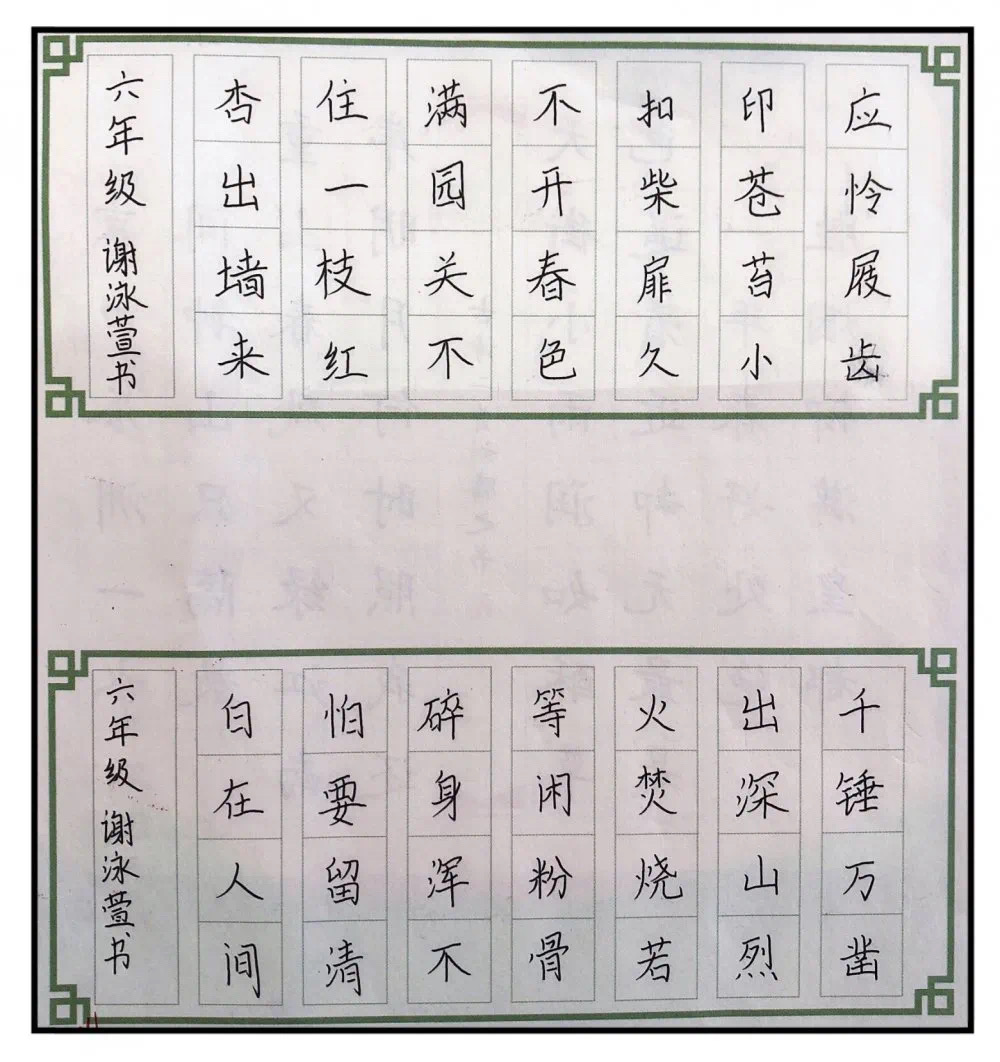 应怜屐齿
印苍苔小
扣柴扉久
不开春色
满园关不
住一枝红
杏出墙来
六年级 谢泳萱书
千锤万凿
出深山烈
火焚烧若
等闲粉骨
碎身浑不
怕要留清
白在人间
六年级 谢泳萱书